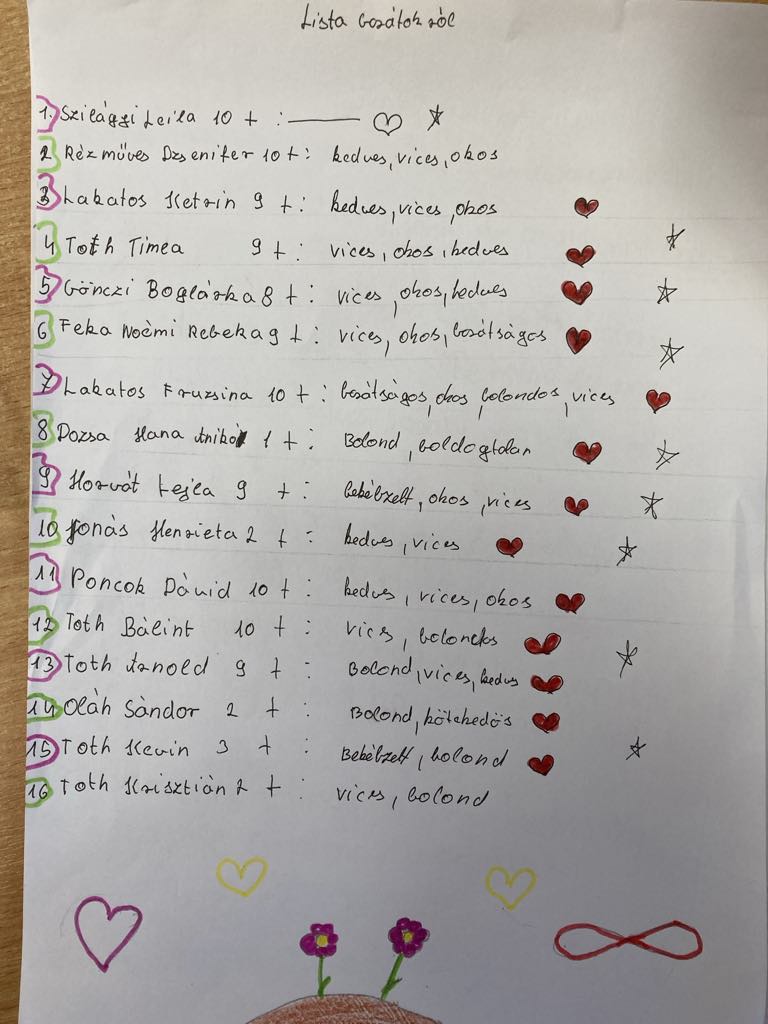 Lista barátok ról
1. Szilágyi Leila 10 +:
2 Rézműves Dzsenifer 10 +: kedves, vices, okos
3 Lakatos Ketrin 9 +: kedves, vices, okos
4 Toth Timea 9 +: vices, okos, kedves
5 Gönczi Boglárka 8 +: vices, okos, kedves
6 Feka Noèmi Rebeka 9 +: vices, okos, barátságos
7 Lakatos Fruzsina 10 +: barátságos, okos, bolondos, vices
8 Dozsa Hana Anikó 1 +: Bolond, boldogtalan
9 Horvát Lejla 9 +: okos, vices
10 Jonás Henrieta 2 +: kedves, vices
11 Poncok Dàvid 10 +: kedves, vices, okos
12 Toth Bàlint 10 +: vics, bolondos
13 Toth Arnold 9 +: Bolond, vices, kedves
14 Olàh Sàndor 2 +: Bolond, kötekedös
15 Toth Kevin 3 +: bolond
16 Toth Krisztiàn 2 +: vices, bolond